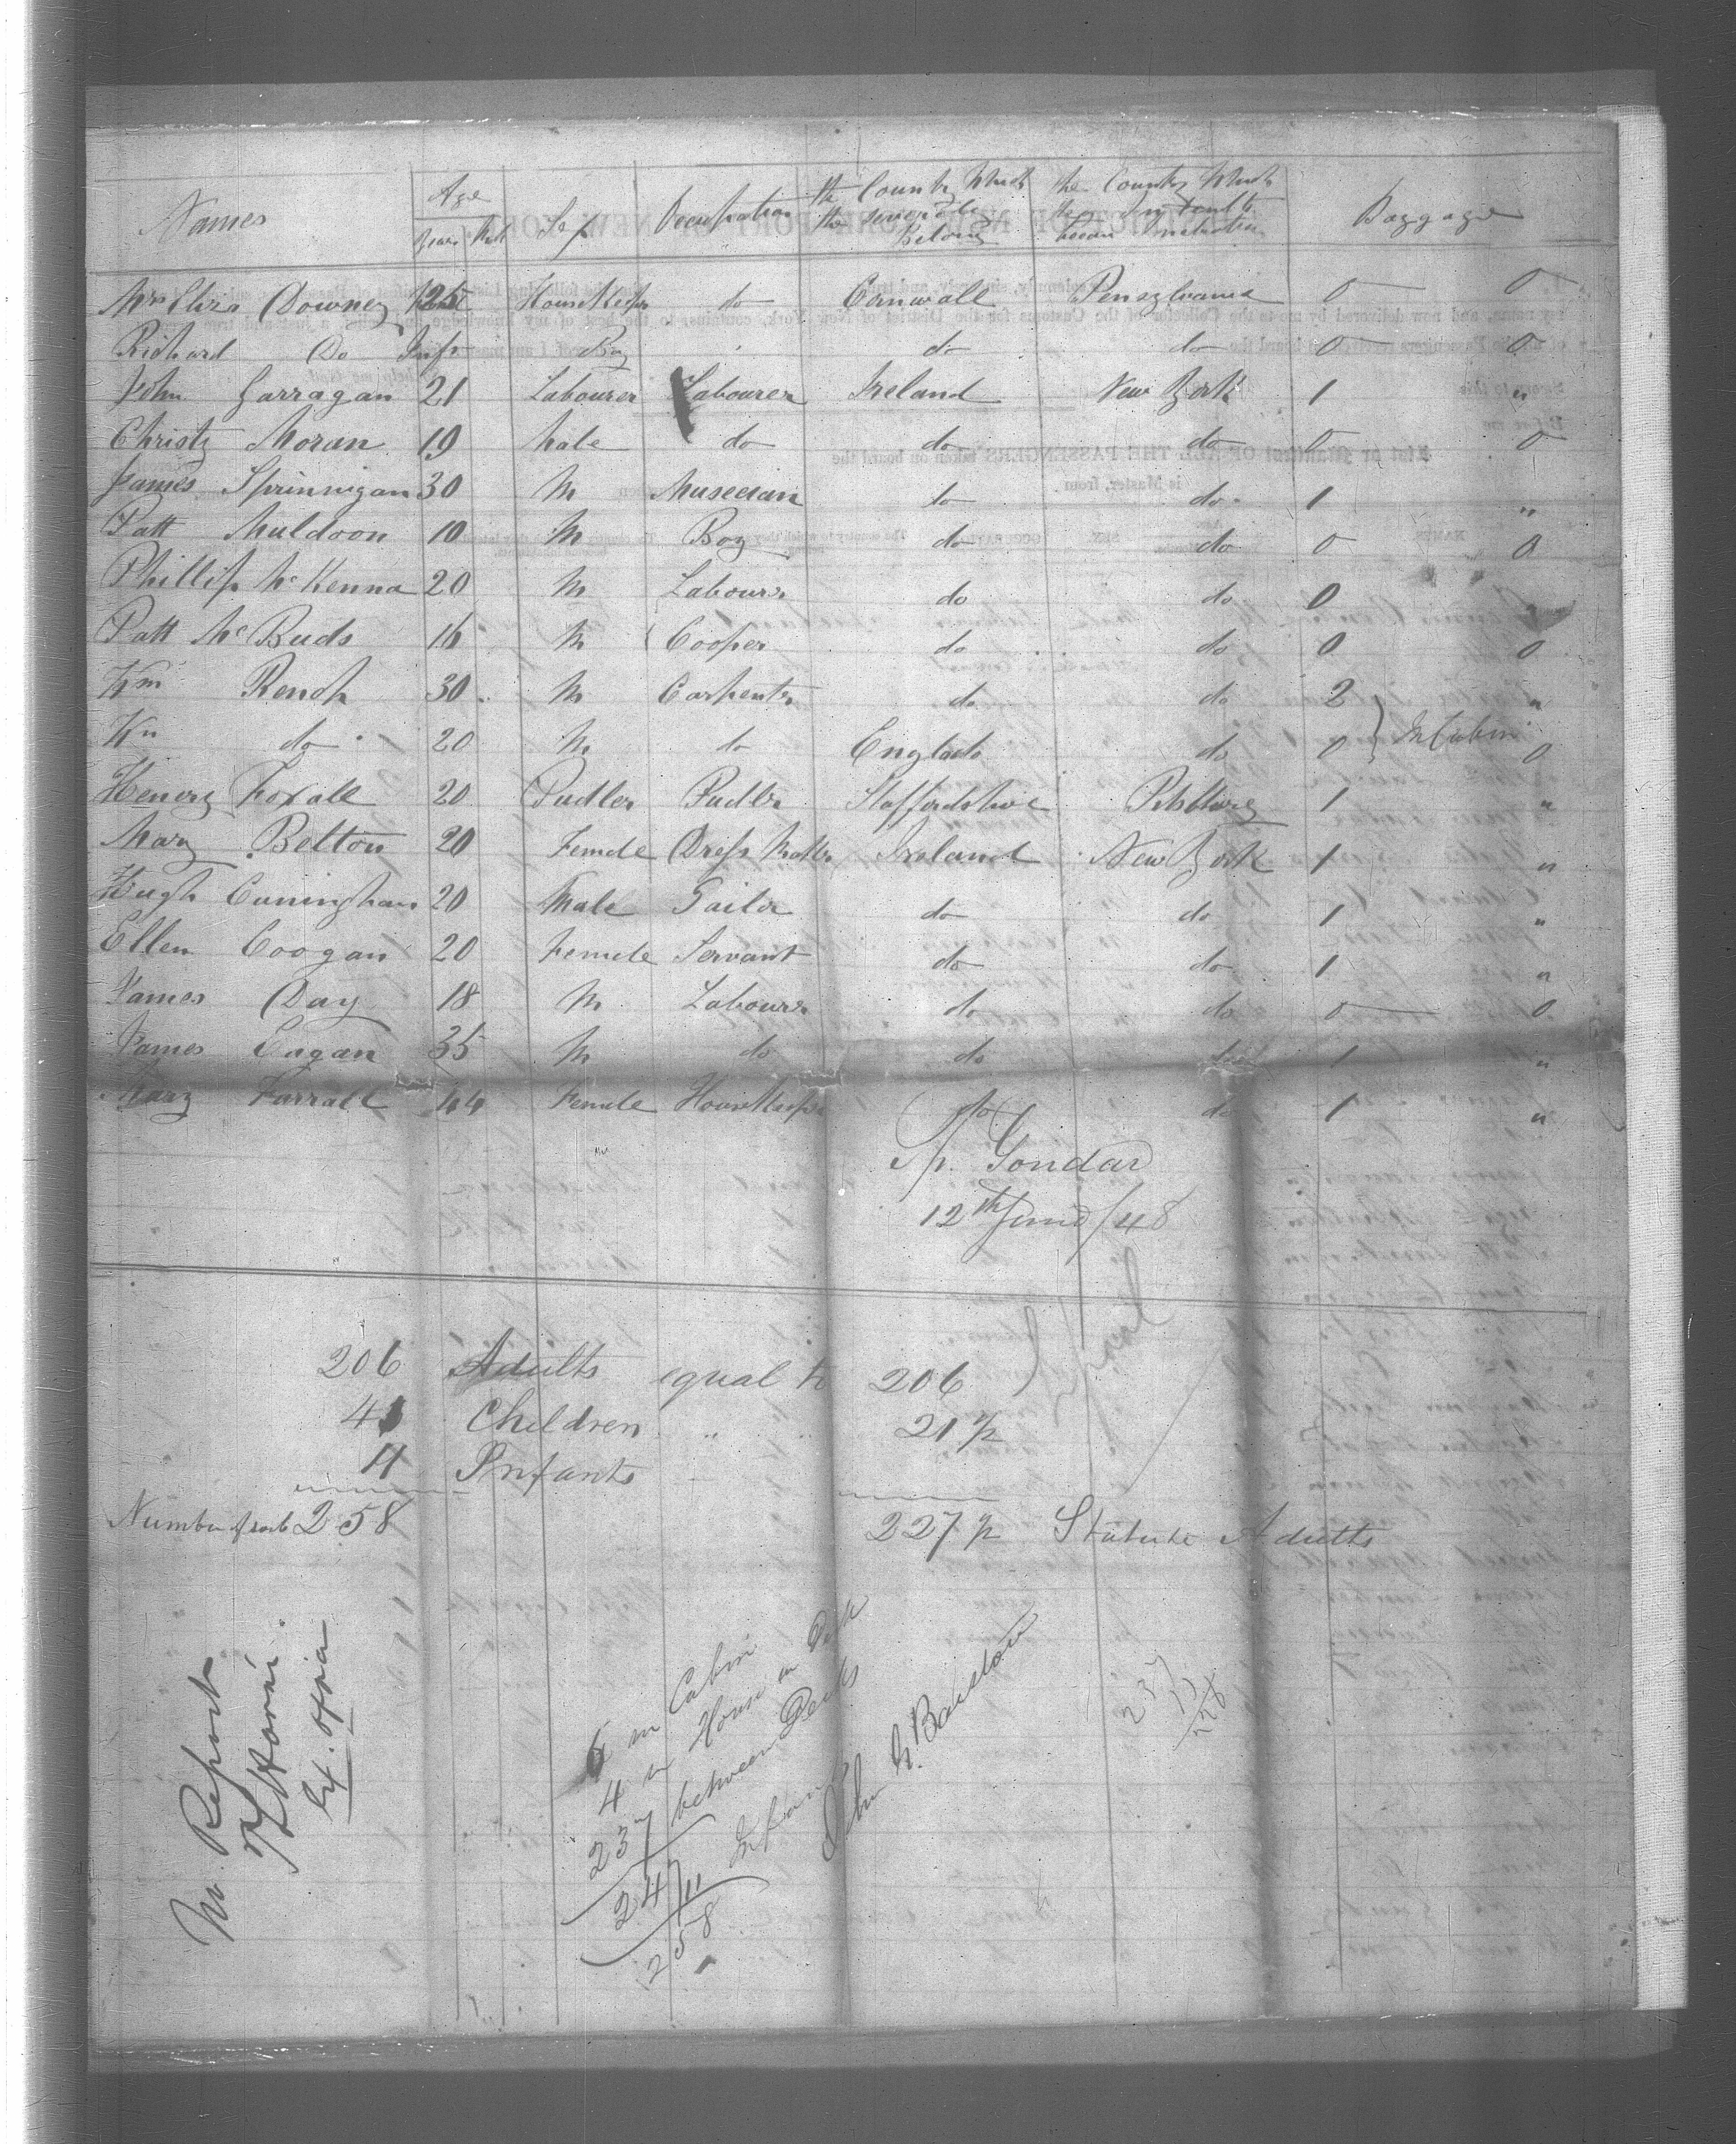 Names Age Sex Occupation the Country Which the severally Belong the Country Which they Intend to become Inhabitants Baggage
Years
Mrs Eliza Downey 25 HouseKeeper do Cornwall Pensylvania 0 0
Richard Do Inft Boy do do 0 0
John Garragan 21 Labourer Labourer Ireland New York 1 "
Christy Moran 19 Male do do do 0 0
James Sprinnigan 30 M Musecian do do 1 "
Patt Muldoon 10 M Boy do do 0 0
Phillip McKenna 20 M Labourer do do 0
Patt Mc Buds 16 M Cooper do do 0 0
Wm Renoh 30 M Carpenter do do 2 "
Wm do 20 M do England do 0 In Cabin 0
Henery Foxall 20 Pudler Pudler Staffordshire Pittsburg 1 "
Mary Belton 20 Female Dress Maker Ireland New York 1 "
Hugh Cuningham 20 Male Tailor do do 1 "
Ellen Coogan 20 Female Servant do do 1 "
James Day 18 M Labourer do do 0 0
James Eagan 35 M do do do 1 "
Mary Farrall 44 Female HouseKeeper do do 1 "
Sp. Gondar
12th June/48
206 Adults equal to 206
43 Children " " 21 1/2
Infants
Number of souls 258 227 1/2 Statute Adults
No Report
6 in Cabin
4 in House on Deck
237 between Decks
247
11 Infants
258
John G. Barstow
237